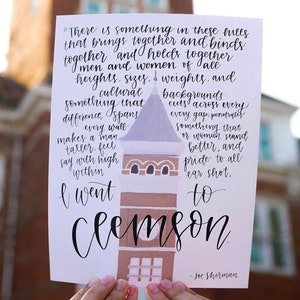 "There is something in these hills
that brings together and binds
together and holds together
men and women of all
heights, sizes, weights, and
cultural backgrounds.
something that cuts across every
difference, spans every gap, penetrates
every wall something that
makes a man or woman stand
taller, feel better, and
say with high pride to all
within ear shot,
I went to
Clemson.
- Joe Sherman